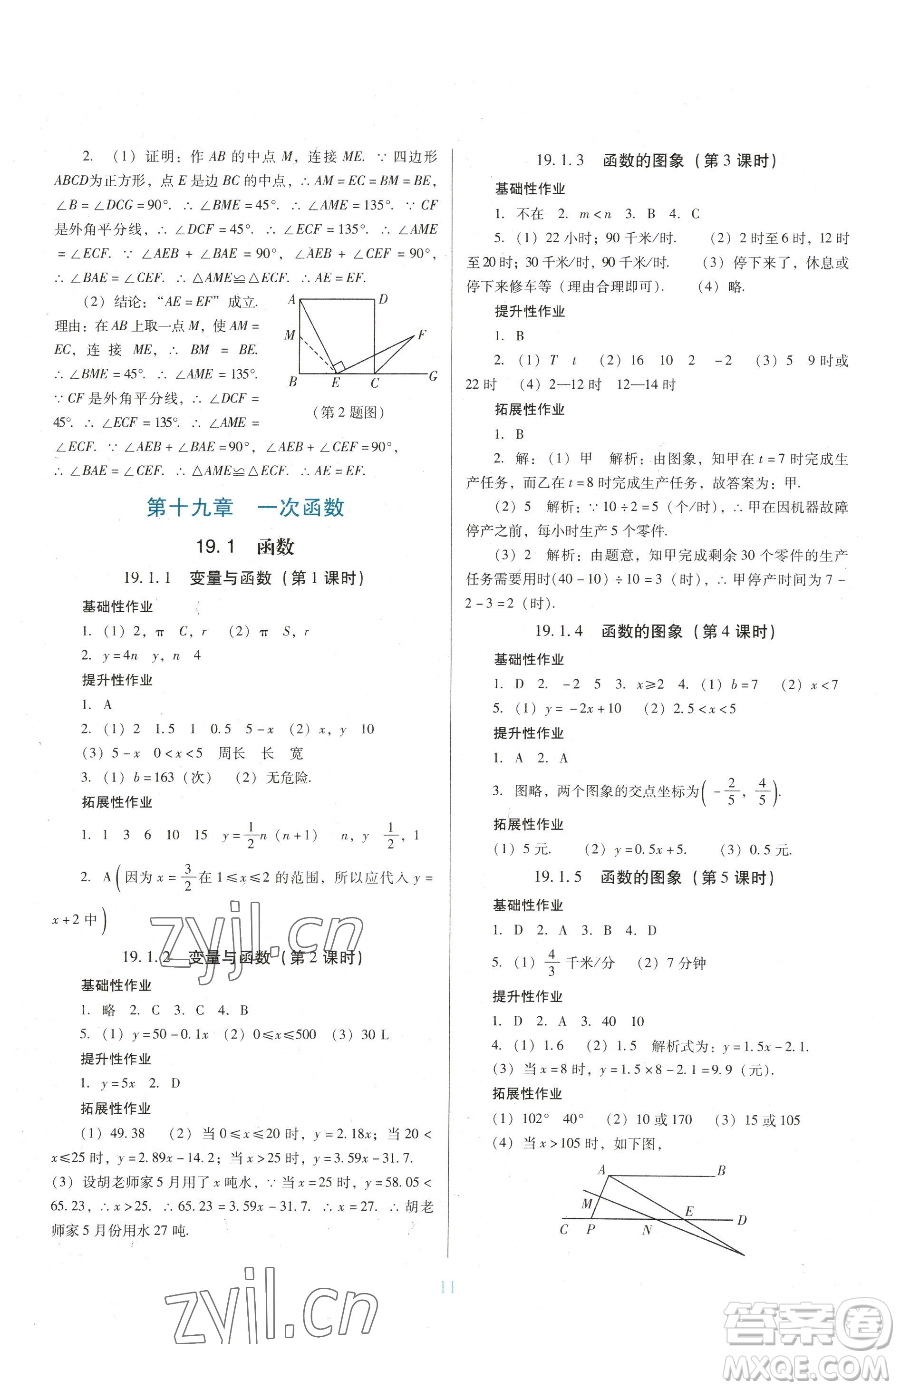 2. (1) 证明:作 AB 的中点 M, 连接 ME. ∵ 四边形
ABCD为正方形, 点 E 是边 BC 的中点, ∴ AM = EC = BM = BE,
∠B = ∠DCG = 90°. ∴ ∠BME = 45°. ∴ ∠AME = 135°. ∵ CF
是外角平分线, ∴ ∠DCF = 45°. ∴ ∠ECF = 135°. ∴ ∠AME
= ∠ECF. ∵ ∠AEB + ∠BAE = 90°, ∠AEB + ∠CEF = 90°,
∴ ∠BAE = ∠CEF. ∴ △AME≌△ECF. ∴ AE = EF.
(2) 结论: “AE = EF” 成立.
理由: 在 AB 上取一点 M, 使 AM =
EC, 连接 ME, ∴ BM = BE.
∴ ∠BME = 45°. ∴ ∠AME = 135°.
∵ CF 是外角平分线, ∴ ∠DCF =
45°. ∴ ∠ECF = 135°. ∴ ∠AME =
∠ECF. ∵ ∠AEB + ∠BAE = 90°, ∠AEB + ∠CEF = 90°,
∴ ∠BAE = ∠CEF. ∴ △AME≌△ECF. ∴ AE = EF.
A D
M F
B E C G
(第 2 题图)
第十九章 一次函数
19.1 函数
19.1.1 变量与函数 (第 1 课时)
基础性作业
1. (1) 2, π C, r (2) π S, r
2. y = 4n y, n 4
提升性作业
1. A
2. (1) 2 1.5 1 0.5 5-x (2) x, y 10
(3) 5-x 0<x<5 周长 长 宽
3. (1) b=163 (次) (2) 无危险.
拓展性作业
1. 1 3 6 10 15 y = 1/2 n (n+1) n, y 1/2, 1
2. A (因为 x = 3/2 在 1≤x≤2 的范围, 所以应代入 y =
x+2 中)
19.1.2 变量与函数 (第 2 课时)
基础性作业
1. 略 2. C 3. C 4. B
5. (1) y=50-0.1x (2) 0≤x≤500 (3) 30 L
提升性作业
1. y=5x 2. D
拓展性作业
(1) 49.38 (2) 当 0≤x≤20 时, y=2.18x; 当 20<
x≤25 时, y=2.89x-14.2; 当 x>25 时, y=3.59x-31.7.
(3) 设胡老师家 5 月用了 x 吨水, ∵ 当 x=25 时, y=58.05<
65.23, ∴ x>25. ∴ 65.23=3.59x-31.7. ∴ x=27. ∴ 胡老
师家 5 月份用水 27 吨.
19.1.3 函数的图象 (第 3 课时)
基础性作业
1. 不在 2. m<n 3. B 4. C
5. (1) 22 小时; 90 千米/时. (2) 2 时至 6 时, 12 时
至 20 时; 30 千米/时, 90 千米/时. (3) 停下来了, 休息或
停下来修车等 (理由合理即可). (4) 略.
提升性作业
1. B
2. (1) T t (2) 16 10 2 -2 (3) 5 9 时或
22 时 (4) 2—12 时 12—14 时
拓展性作业
1. B
2. 解: (1) 甲 解析: 由图象, 知甲在 t=7 时完成生
产任务, 而乙在 t=8 时完成生产任务, 故答案为: 甲.
(2) 5 解析: ∵ 10÷2=5 (个/时), ∴ 甲在因机器故障
停产之前, 每小时生产 5 个零件.
(3) 2 解析: 由题意, 知甲完成剩余 30 个零件的生产
任务需要用时 (40-10)÷10=3 (时), ∴ 甲停产时间为 7-
2-3=2 (时).
19.1.4 函数的图象 (第 4 课时)
基础性作业
1. D 2. -2 5 3. x≥2 4. (1) b=7 (2) x<7
5. (1) y=-2x+10 (2) 2.5<x<5
提升性作业
1. A 2. A
3. 图略, 两个图象的交点坐标为 (-2/5, 4/5).
拓展性作业
(1) 5 元. (2) y=0.5x+5. (3) 0.5 元.
19.1.5 函数的图象 (第 5 课时)
基础性作业
1. D 2. A 3. D 4. A
5. (1) 4/3 千米/分 (2) 7 分钟
提升性作业
1. D 2. A 3. 40 10
4. (1) 1.6 (2) 1.5 解析式为: y=1.5x-2.1.
(3) 当 x=8 时, y=1.5×8-2.1=9.9 (元).
拓展性作业
(1) 102° 40° (2) 10 或 170 (3) 15 或 105
(4) 当 x>105 时, 如下图,
A B
M E
C P N D
11
zyjl.cn
zyjl.cn
答案圈
MXQE.COM